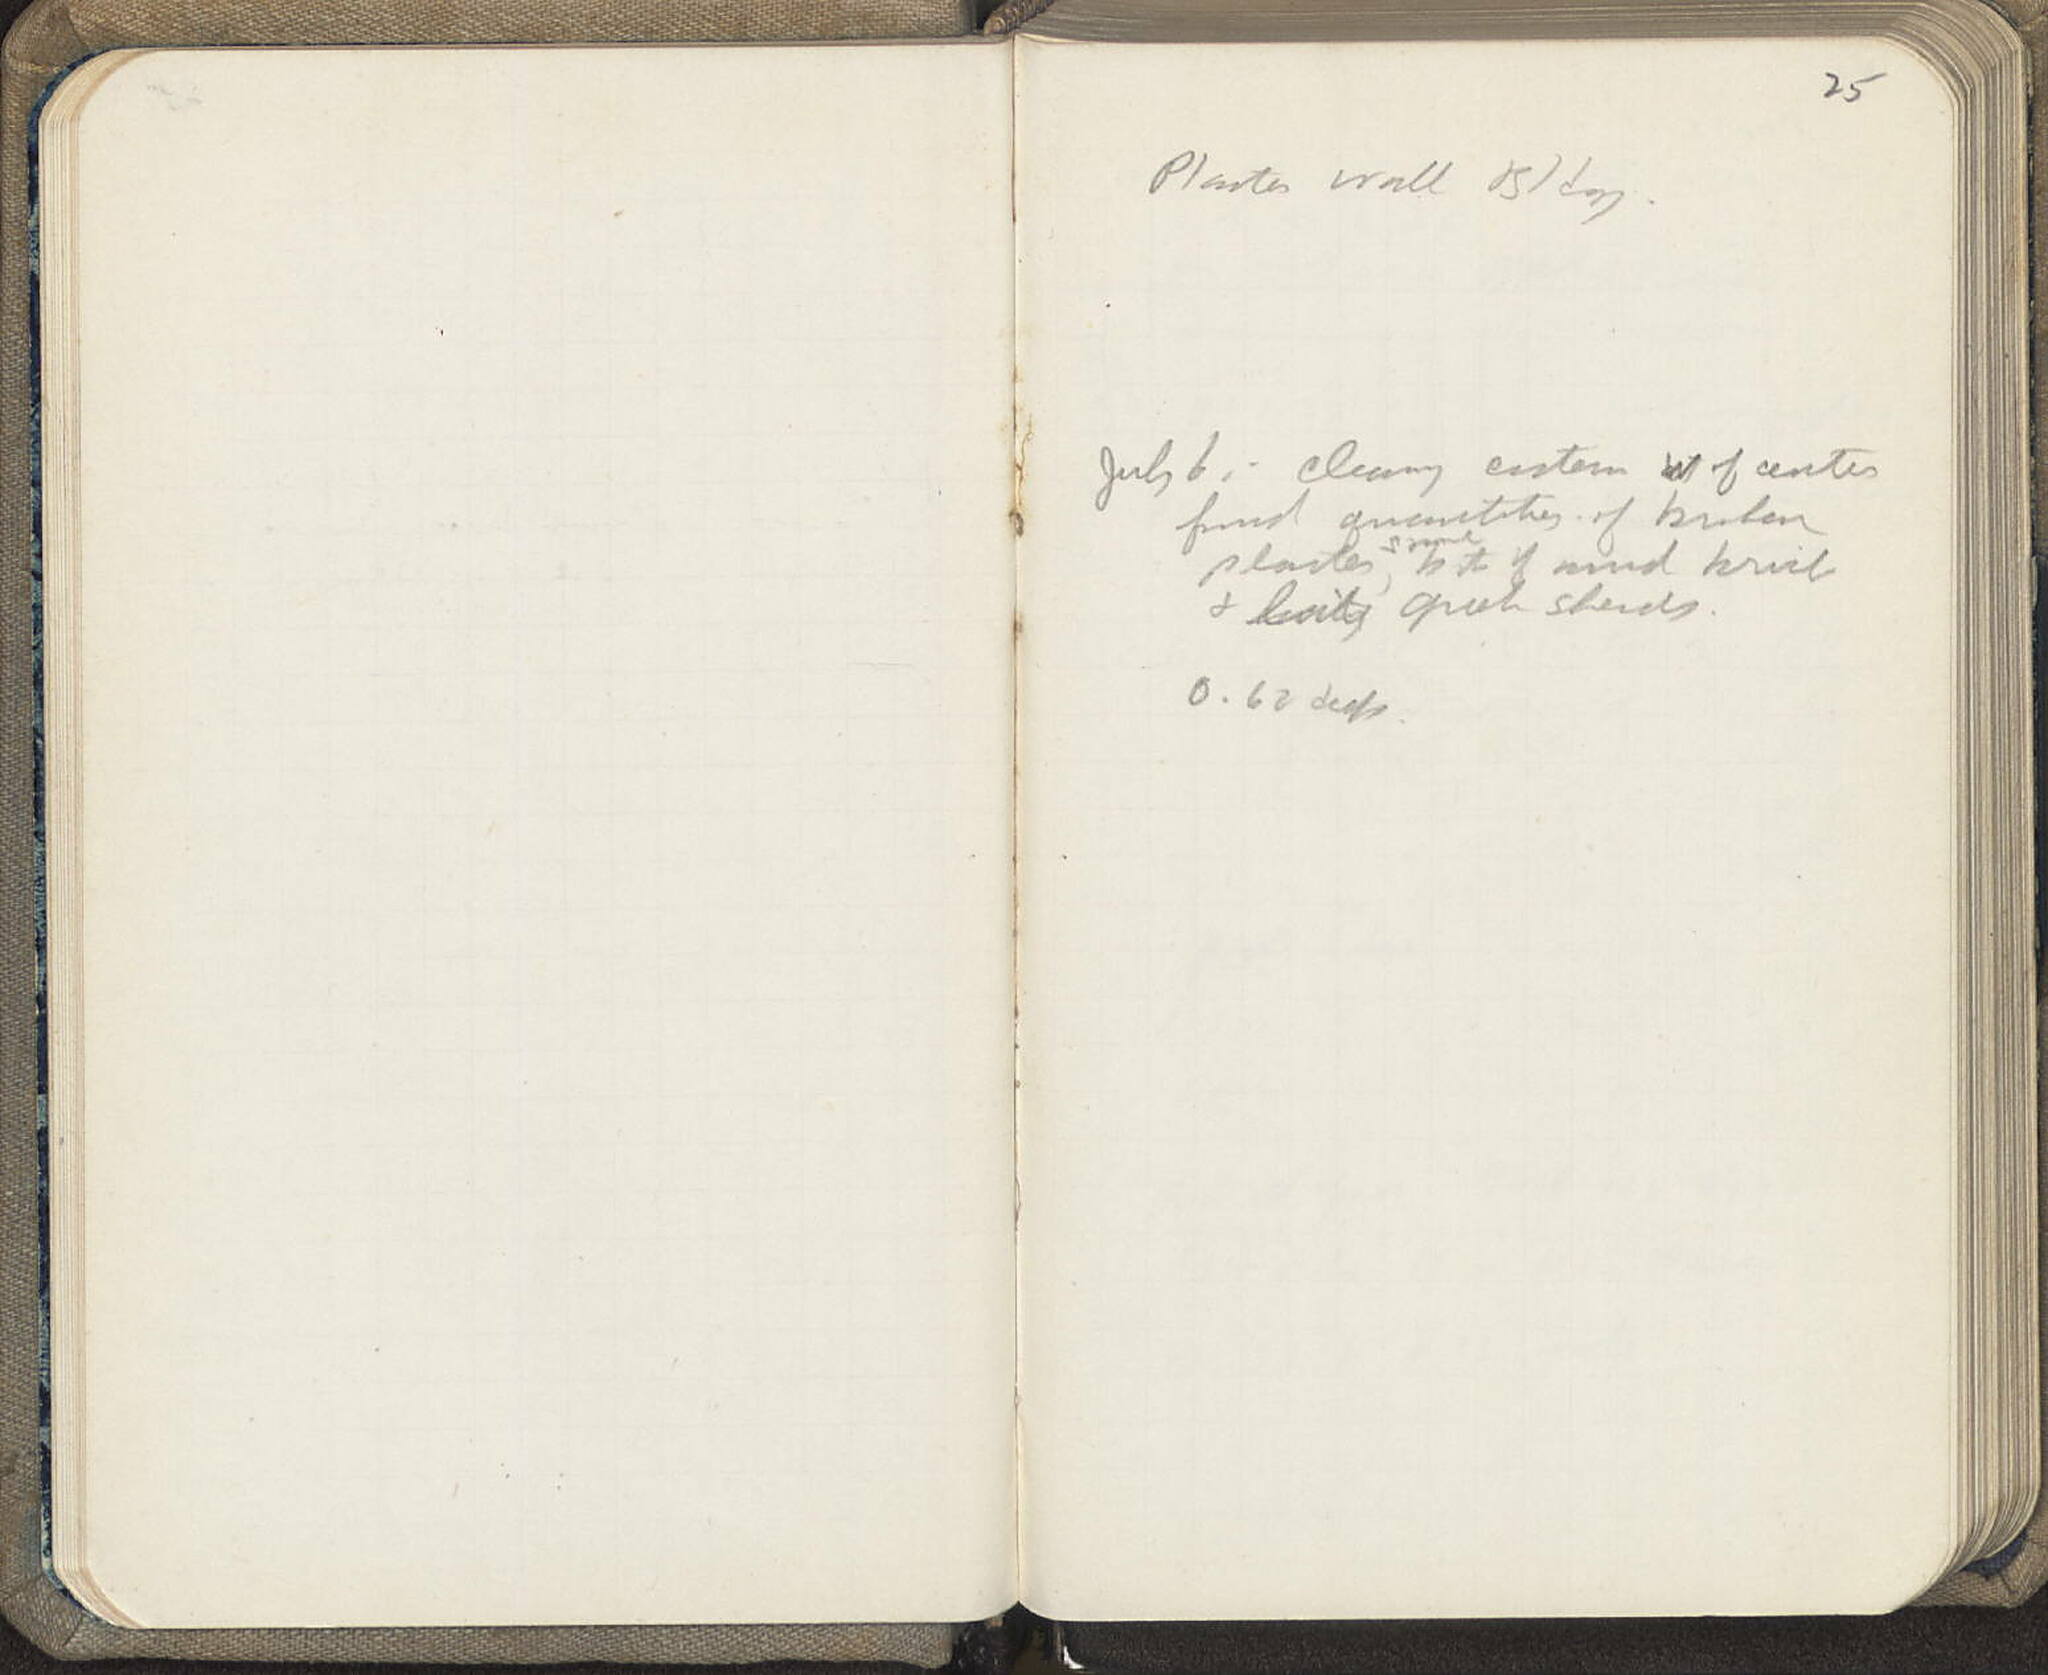 25
Plaster wall
July 6:- cleaning eastern of center
found quantities of broken
plaster, some bits of mud brick
& Greek sherds.
0.62 deep.